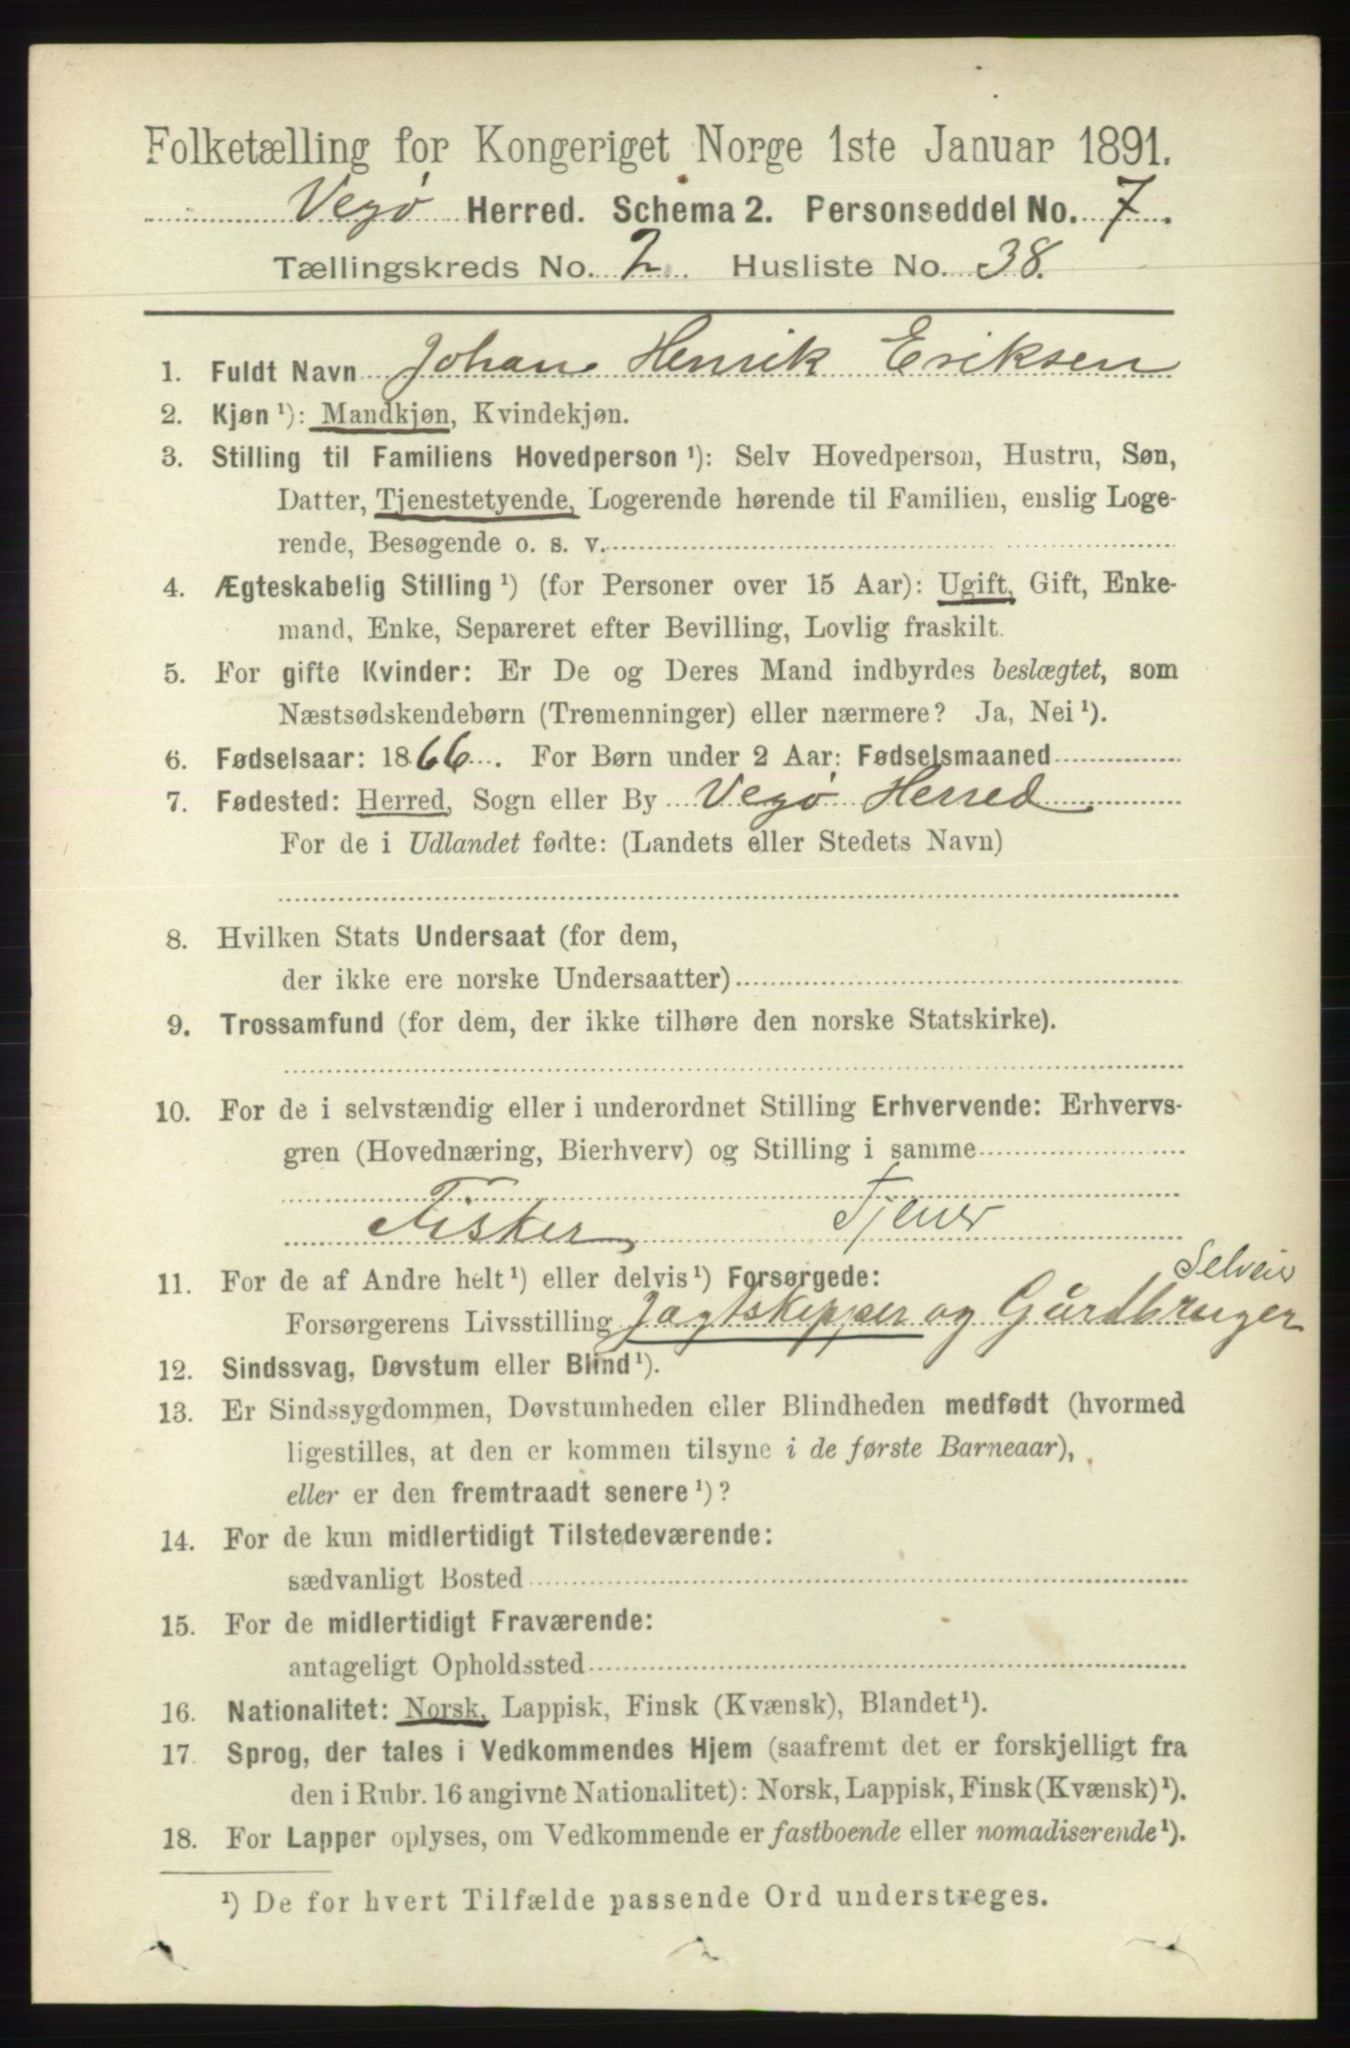 Folketælling for Kongeriget Norge 1ste Januar 1891.
Vegø Herred. Schema 2. Personseddel No. 7.
Tællingskreds No. 2. Husliste No. 38.
1. Fuldt Navn Johan Henrik Eriksen
2. Kjøn ¹): Mandkjøn, Kvindekjøn.
3. Stilling til Familiens Hovedperson ¹): Selv Hovedperson, Hustru, Søn,
Datter, Tjenestetyende, Logerende hørende til Familien, enslig Loge-
rende, Besøgende o. s. v.
4. Ægteskabelig Stilling ¹) (for Personer over 15 Aar): Ugift, Gift, Enke-
mand, Enke, Separeret efter Bevilling, Lovlig fraskilt.
5. For gifte Kvinder: Er De og Deres Mand indbyrdes beslægtet, som
Næstsødskendebørn (Tremenninger) eller nærmere? Ja, Nei ¹).
6. Fødselsaar: 1866. For Børn under 2 Aar: Fødselsmaaned
7. Fødested: Herred, Sogn eller By Vegø Herred
For de i Udlandet fødte: (Landets eller Stedets Navn)
8. Hvilken Stats Undersaat (for dem,
der ikke ere norske Undersaatter)
9. Trossamfund (for dem, der ikke tilhøre den norske Statskirke).
10. For de i selvstændig eller i underordnet Stilling Erhvervende: Erhvervs-
gren (Hovednæring, Bierhverv) og Stilling i samme
Fisker Tjener
11. For de af Andre helt ¹) eller delvis ¹) Forsørgede:
Selveier
Forsørgerens Livsstilling Jagtskipper og Gårdbruger
12. Sindssvag, Døvstum eller Blind ¹).
13. Er Sindssygdommen, Døvstumheden eller Blindheden medfødt (hvormed
ligestilles, at den er kommen tilsyne i de første Barneaar),
eller er den fremtraadt senere ¹)?
14. For de kun midlertidigt Tilstedeværende:
sædvanligt Bosted
15. For de midlertidigt Fraværende:
antageligt Opholdssted
16. Nationalitet: Norsk, Lappisk, Finsk (Kvænsk), Blandet ¹).
17. Sprog, der tales i Vedkommendes Hjem (saafremt det er forskjelligt fra
den i Rubr. 16 angivne Nationalitet): Norsk, Lappisk, Finsk (Kvænsk) ¹).
18. For Lapper oplyses, om Vedkommende er fastboende eller nomadiserende ¹).
¹) De for hvert Tilfælde passende Ord understreges.